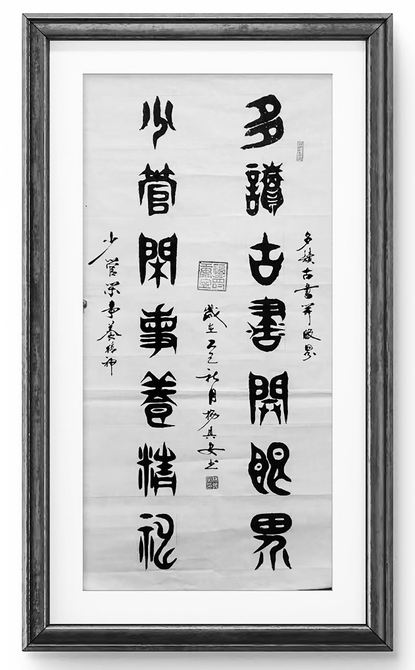 多讀古書開眼界
多讀古書開眼界
歲在乙巳秋月
少管閑事養精神
少管閑事養精神